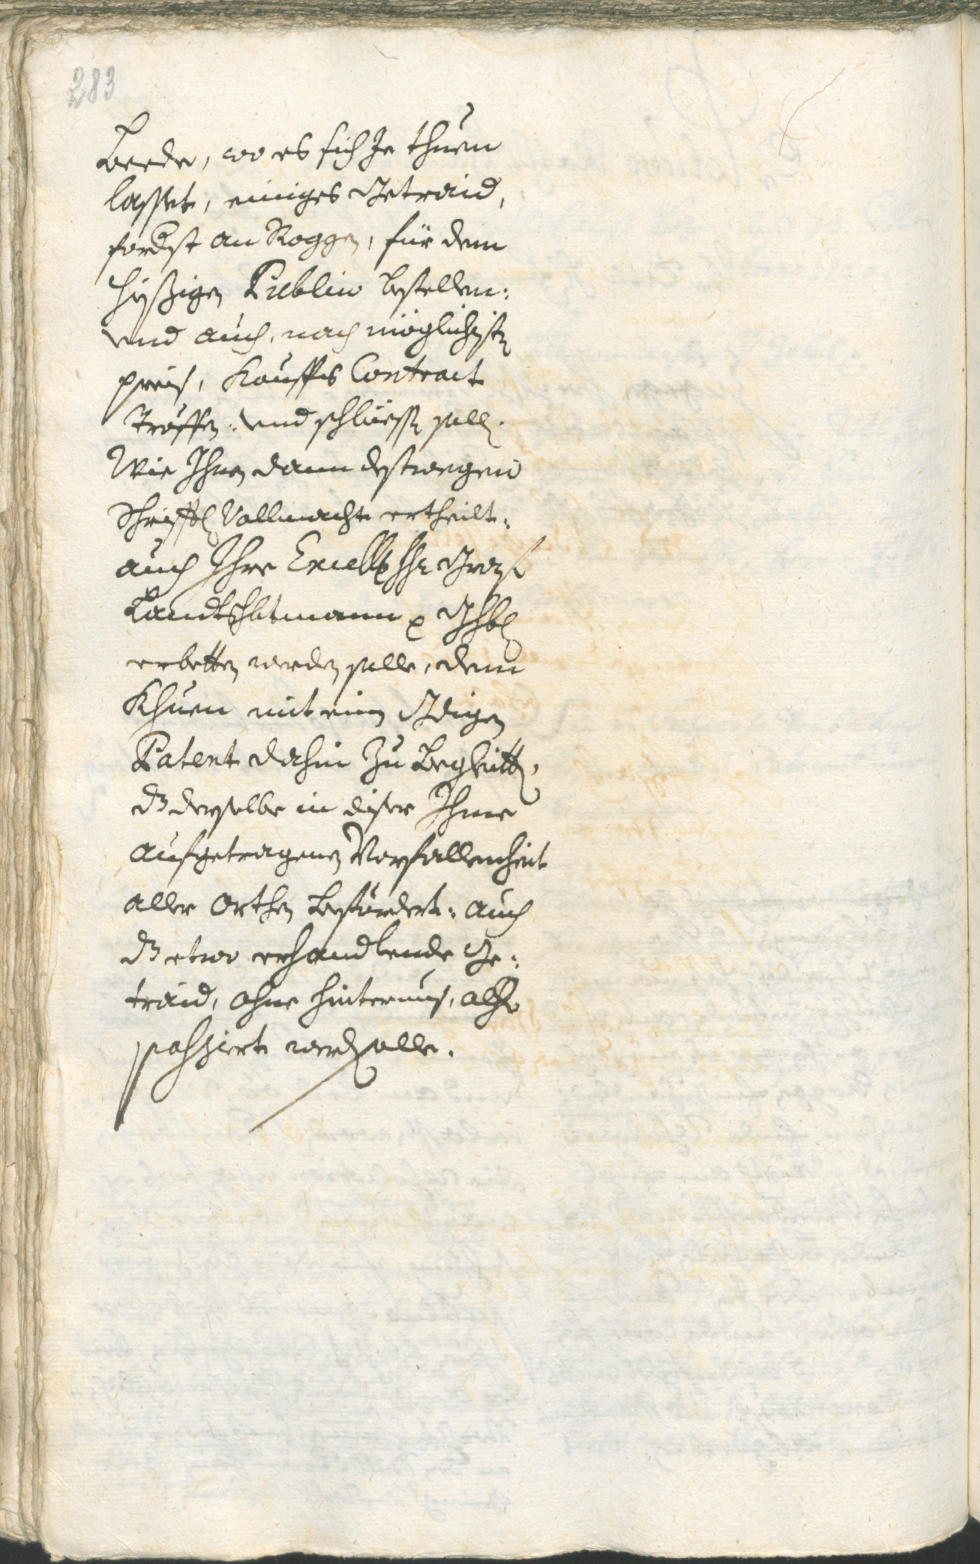 283
Beede, wo es sich Je thuen
lasset, einiges Getraid,
fordist an Roggen, für dem
hyßigen Publico bestellen:
und auch, nach möglichisten
preis, Kauffs Contract
Tröffen: und schliessen sollen.
Wie Ihnen dann destwegen
Schrifftl Vollmacht ertheilt:
auch Ihre Excell. Hr. Graf
Landtshbtmann
erbetten werden solle, dem
Khuen mit einem
Patent dahin zu Begleitten,
dz derselbe in diser Ihme
aufgetragenen Vorfallenheit
aller Orthen befürdert: auch
dz etwo erhandlende Ge:
traid, ohne hinternus,
passiert werden solle.